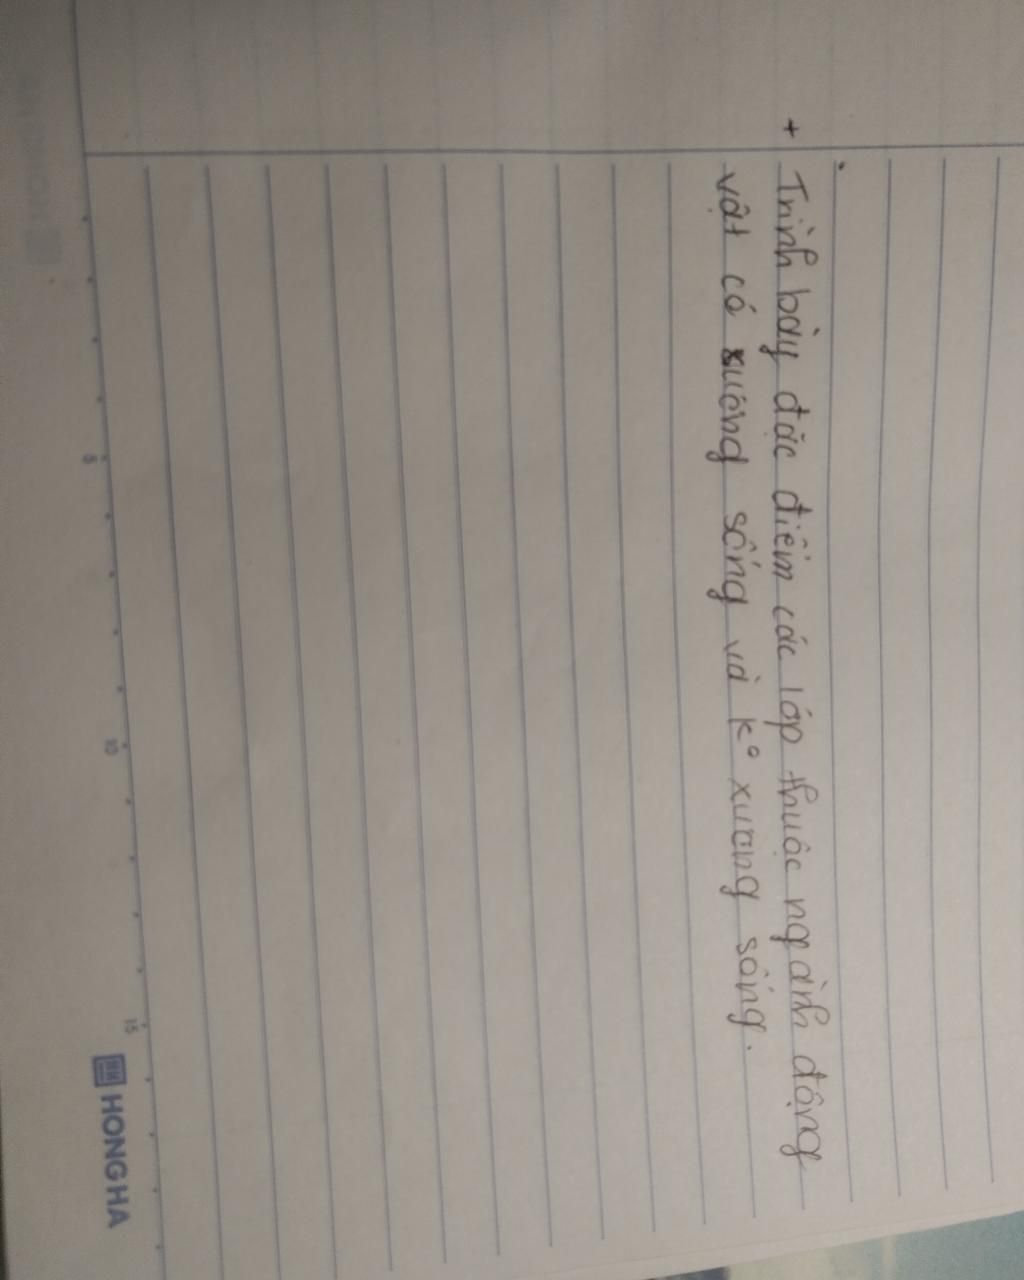 + Trình bày đặc điểm các lớp thuộc ngành động
vật có xương sống và k° xương sống.
5
10
15
HONG HA